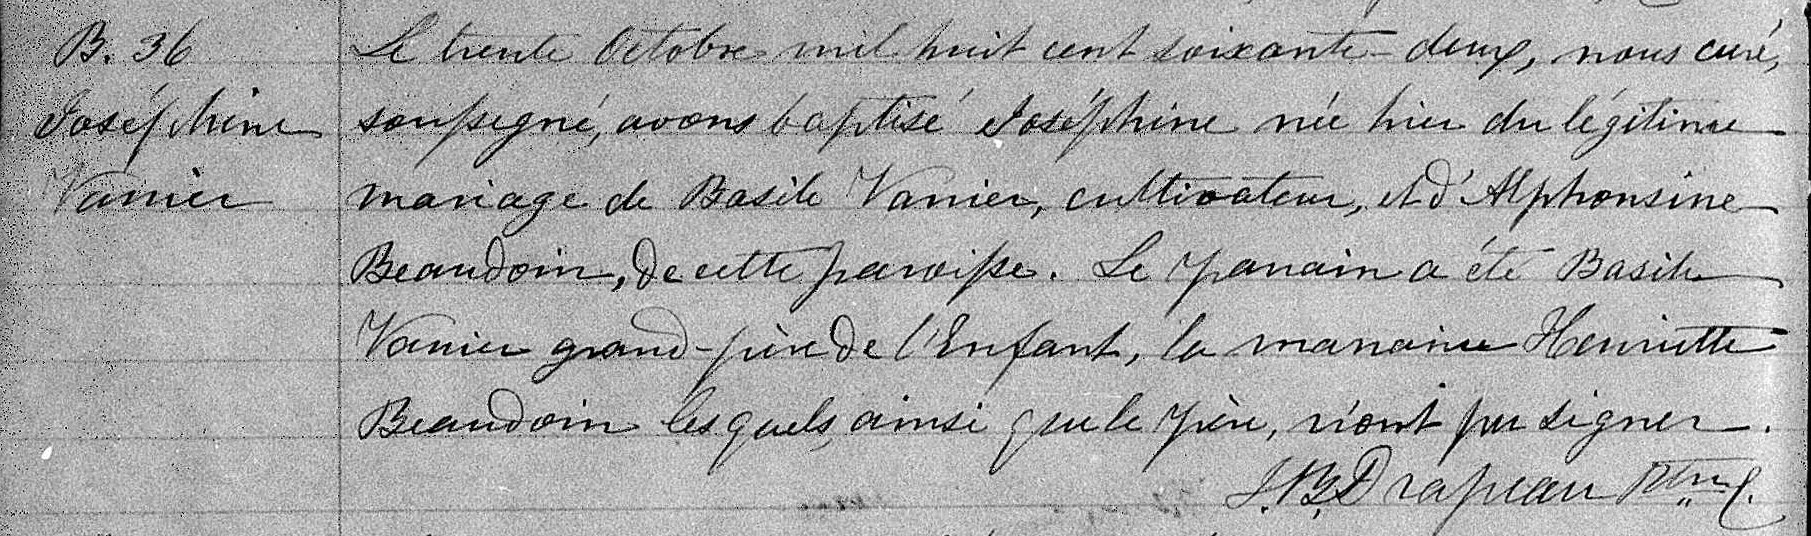 B. 36
Joséphine
Vanier
Le trente Octobre mil huit cent soixante-deux, nous curé,
soussigné, avons baptisé Joséphine née hier du légitime
mariage de Basile Vanier, cultivateur, et d'Alphonsine
Beaudoin, de cette paroisse. Le parrain a été Basile
Vanier grand-père de l'Enfant, la marraine Henriette
Beaudoin lesquels, ainsi que le père, n'ont pu signer.
J. B. Drapeau Ptre C.